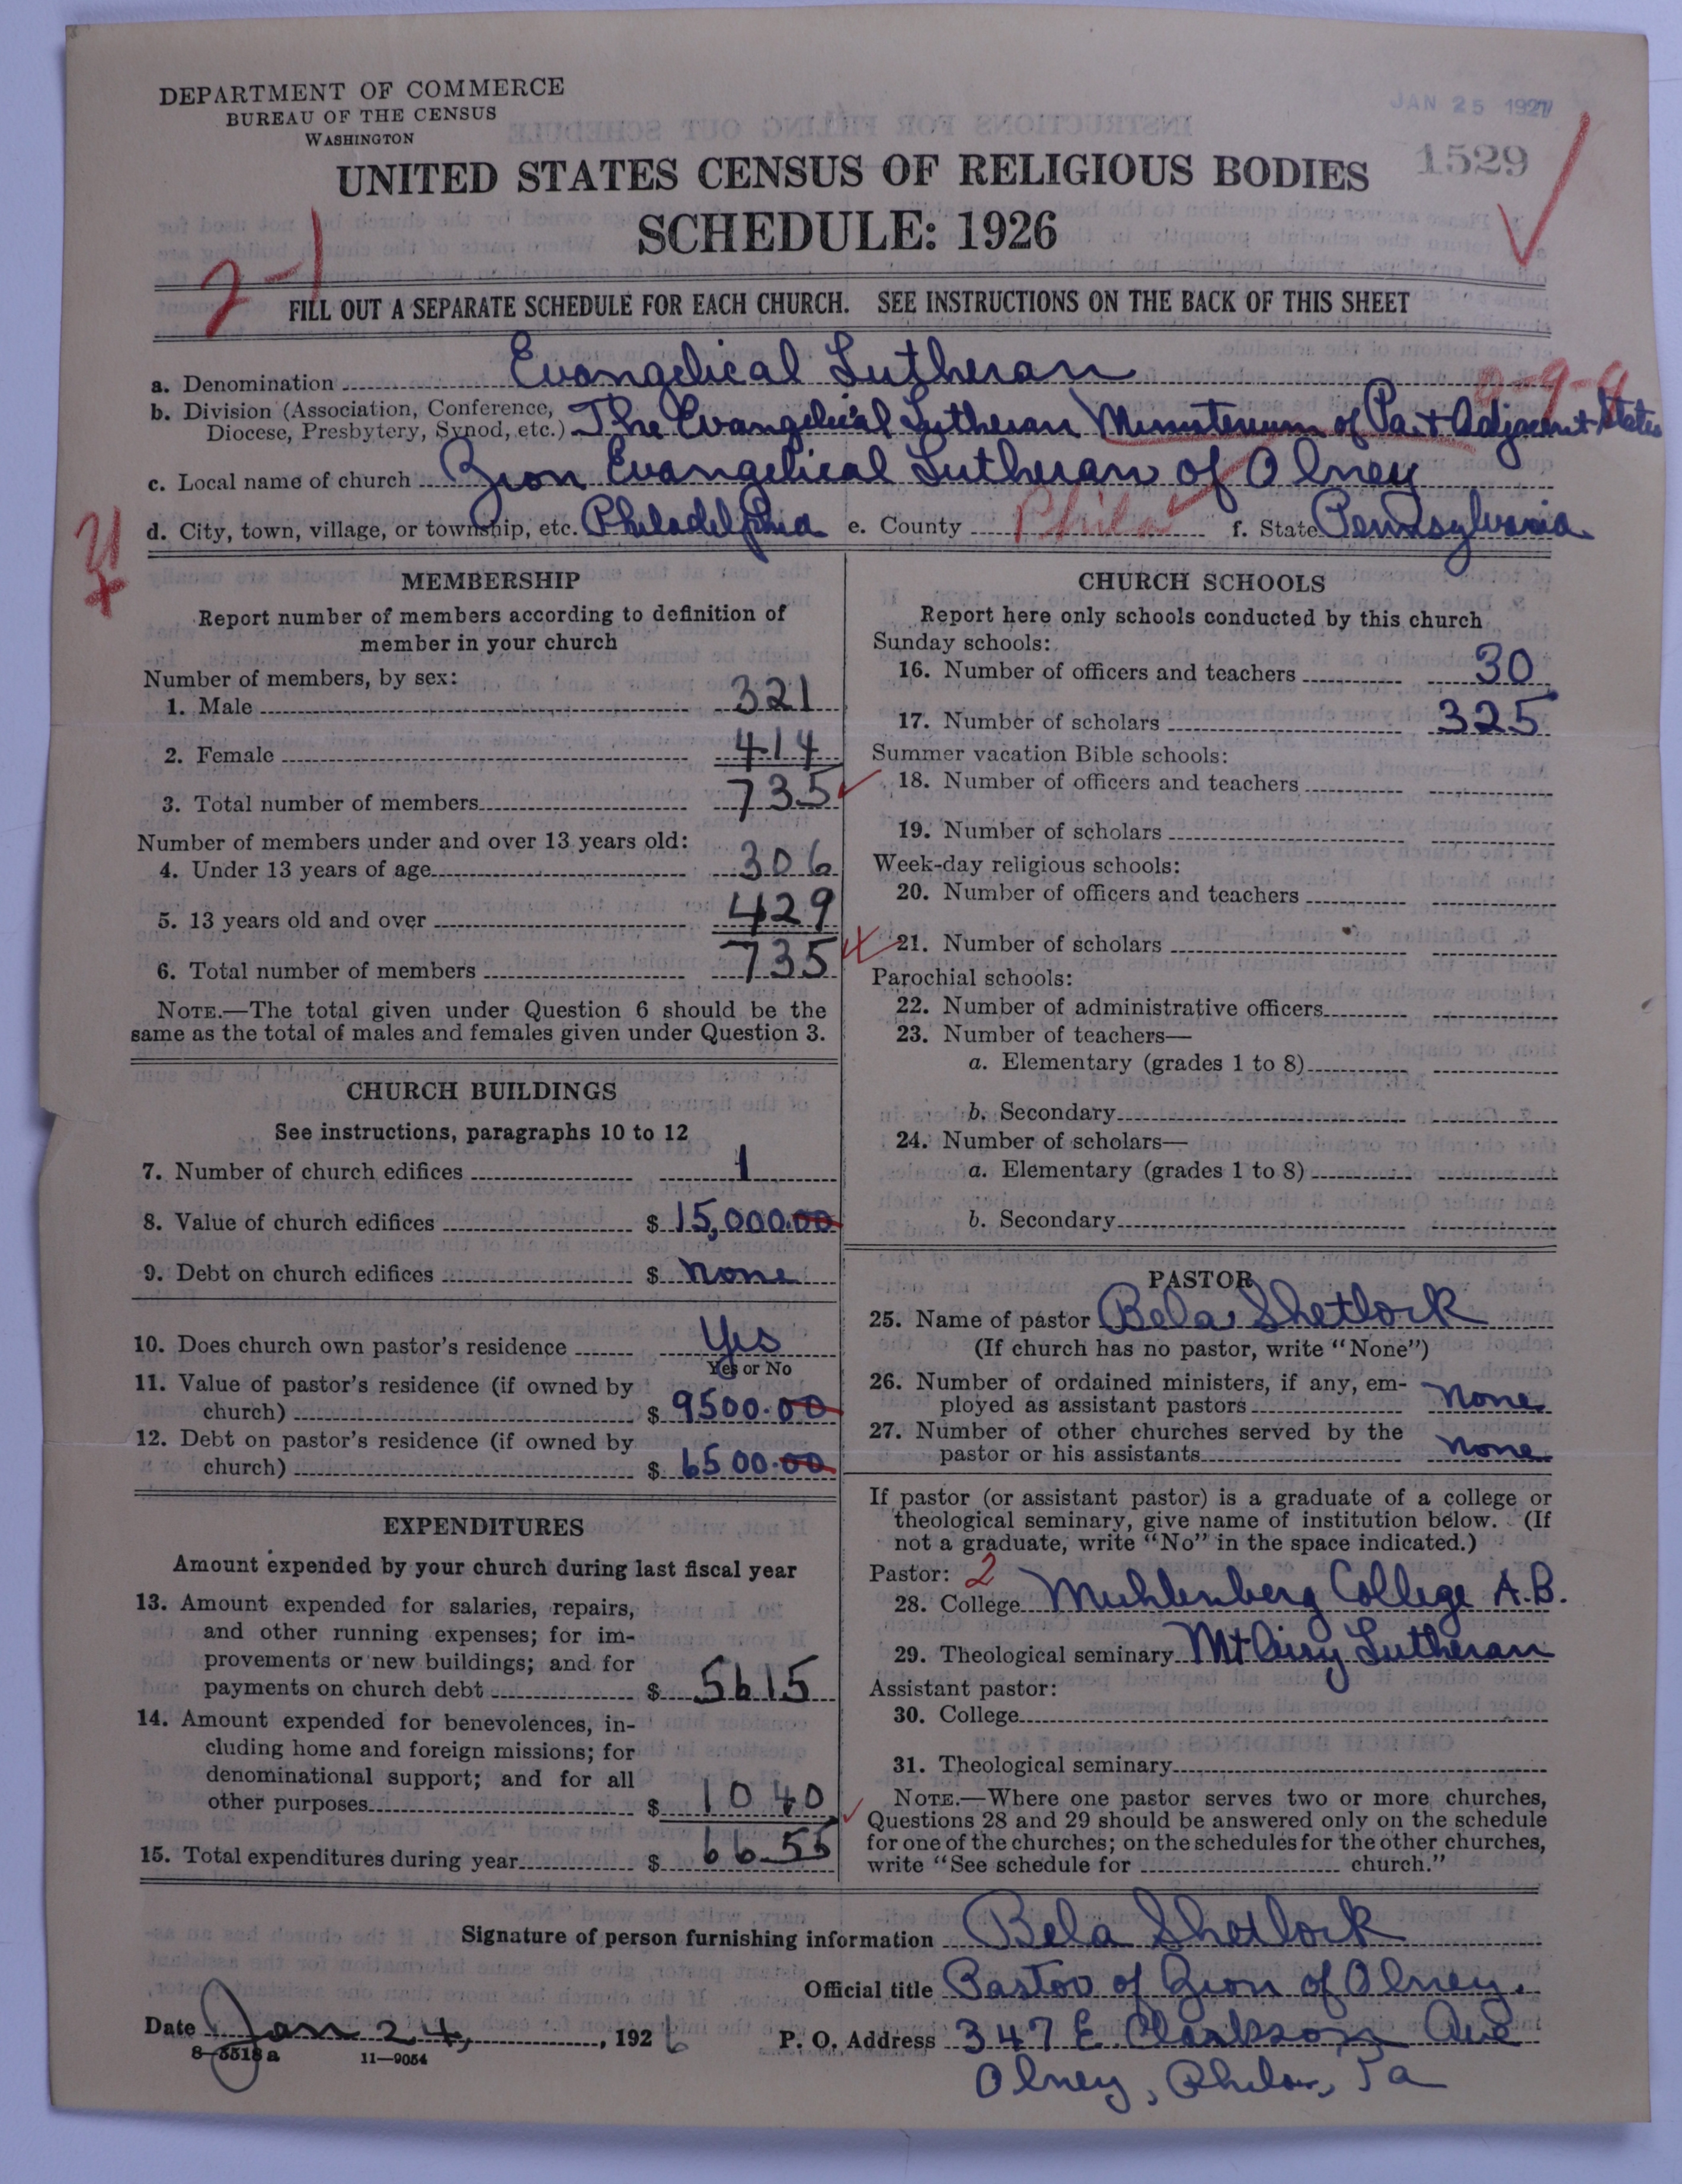 DEPARTMENT OF COMMERCE
BUREAU OF THE CENSUS
WASHINGTON
JAN 25 1927
1529
UNITED STATES CENSUS OF RELIGIOUS BODIES
SCHEDULE: 1926
2-1
FILL OUT A SEPARATE SCHEDULE FOR EACH CHURCH. SEE INSTRUCTIONS ON THE BACK OF THIS SHEET
a. Denomination Evangelical Lutheran
b. Division (Association, Conference, Diocese, Presbytery, Synod, etc.) The Evangelical Lutheran Ministerium of Pa. & Adjacent States
c. Local name of church Zion Evangelical Lutheran of Olney
d. City, town, village, or township, etc. Philadelphia e. County Phila f. State Pennsylvania
MEMBERSHIP
Report number of members according to definition of
member in your church
Number of members, by sex:
1. Male 321
2. Female 414
3. Total number of members 735
Number of members under and over 13 years old:
4. Under 13 years of age 306
5. 13 years old and over 429
6. Total number of members 735
NOTE.—The total given under Question 6 should be the
same as the total of males and females given under Question 3.
CHURCH BUILDINGS
See instructions, paragraphs 10 to 12
7. Number of church edifices 1
8. Value of church edifices $ 15,000.00
9. Debt on church edifices $ none
10. Does church own pastor's residence Yes
Yes or No
11. Value of pastor's residence (if owned by
church) $ 9500.00
12. Debt on pastor's residence (if owned by
church) $ 6500.00
EXPENDITURES
Amount expended by your church during last fiscal year
13. Amount expended for salaries, repairs,
and other running expenses; for im-
provements or new buildings; and for
payments on church debt $ 5615
14. Amount expended for benevolences, in-
cluding home and foreign missions; for
denominational support; and for all
other purposes $ 1040
15. Total expenditures during year $ 6655
CHURCH SCHOOLS
Report here only schools conducted by this church
Sunday schools:
16. Number of officers and teachers 30
17. Number of scholars 325
Summer vacation Bible schools:
18. Number of officers and teachers
19. Number of scholars
Week-day religious schools:
20. Number of officers and teachers
21. Number of scholars
Parochial schools:
22. Number of administrative officers
23. Number of teachers—
a. Elementary (grades 1 to 8)
b. Secondary
24. Number of scholars—
a. Elementary (grades 1 to 8)
b. Secondary
PASTOR
25. Name of pastor Bela Shetlock
(If church has no pastor, write "None")
26. Number of ordained ministers, if any, em-
ployed as assistant pastors none
27. Number of other churches served by the
pastor or his assistants none
If pastor (or assistant pastor) is a graduate of a college or
theological seminary, give name of institution below. (If
not a graduate, write "No" in the space indicated.)
Pastor: 2
28. College Muhlenberg College A.B.
29. Theological seminary Mt Airy Lutheran
Assistant pastor:
30. College
31. Theological seminary
NOTE.—Where one pastor serves two or more churches,
Questions 28 and 29 should be answered only on the schedule
for one of the churches; on the schedules for the other churches,
write "See schedule for church."
Signature of person furnishing information Bela Shetlock
Official title Pastor of Zion of Olney.
Date Jan 24, 1926 P. O. Address 347 E. Clarkson Ave
8—5518a 11—9054
Olney, Phila, Pa